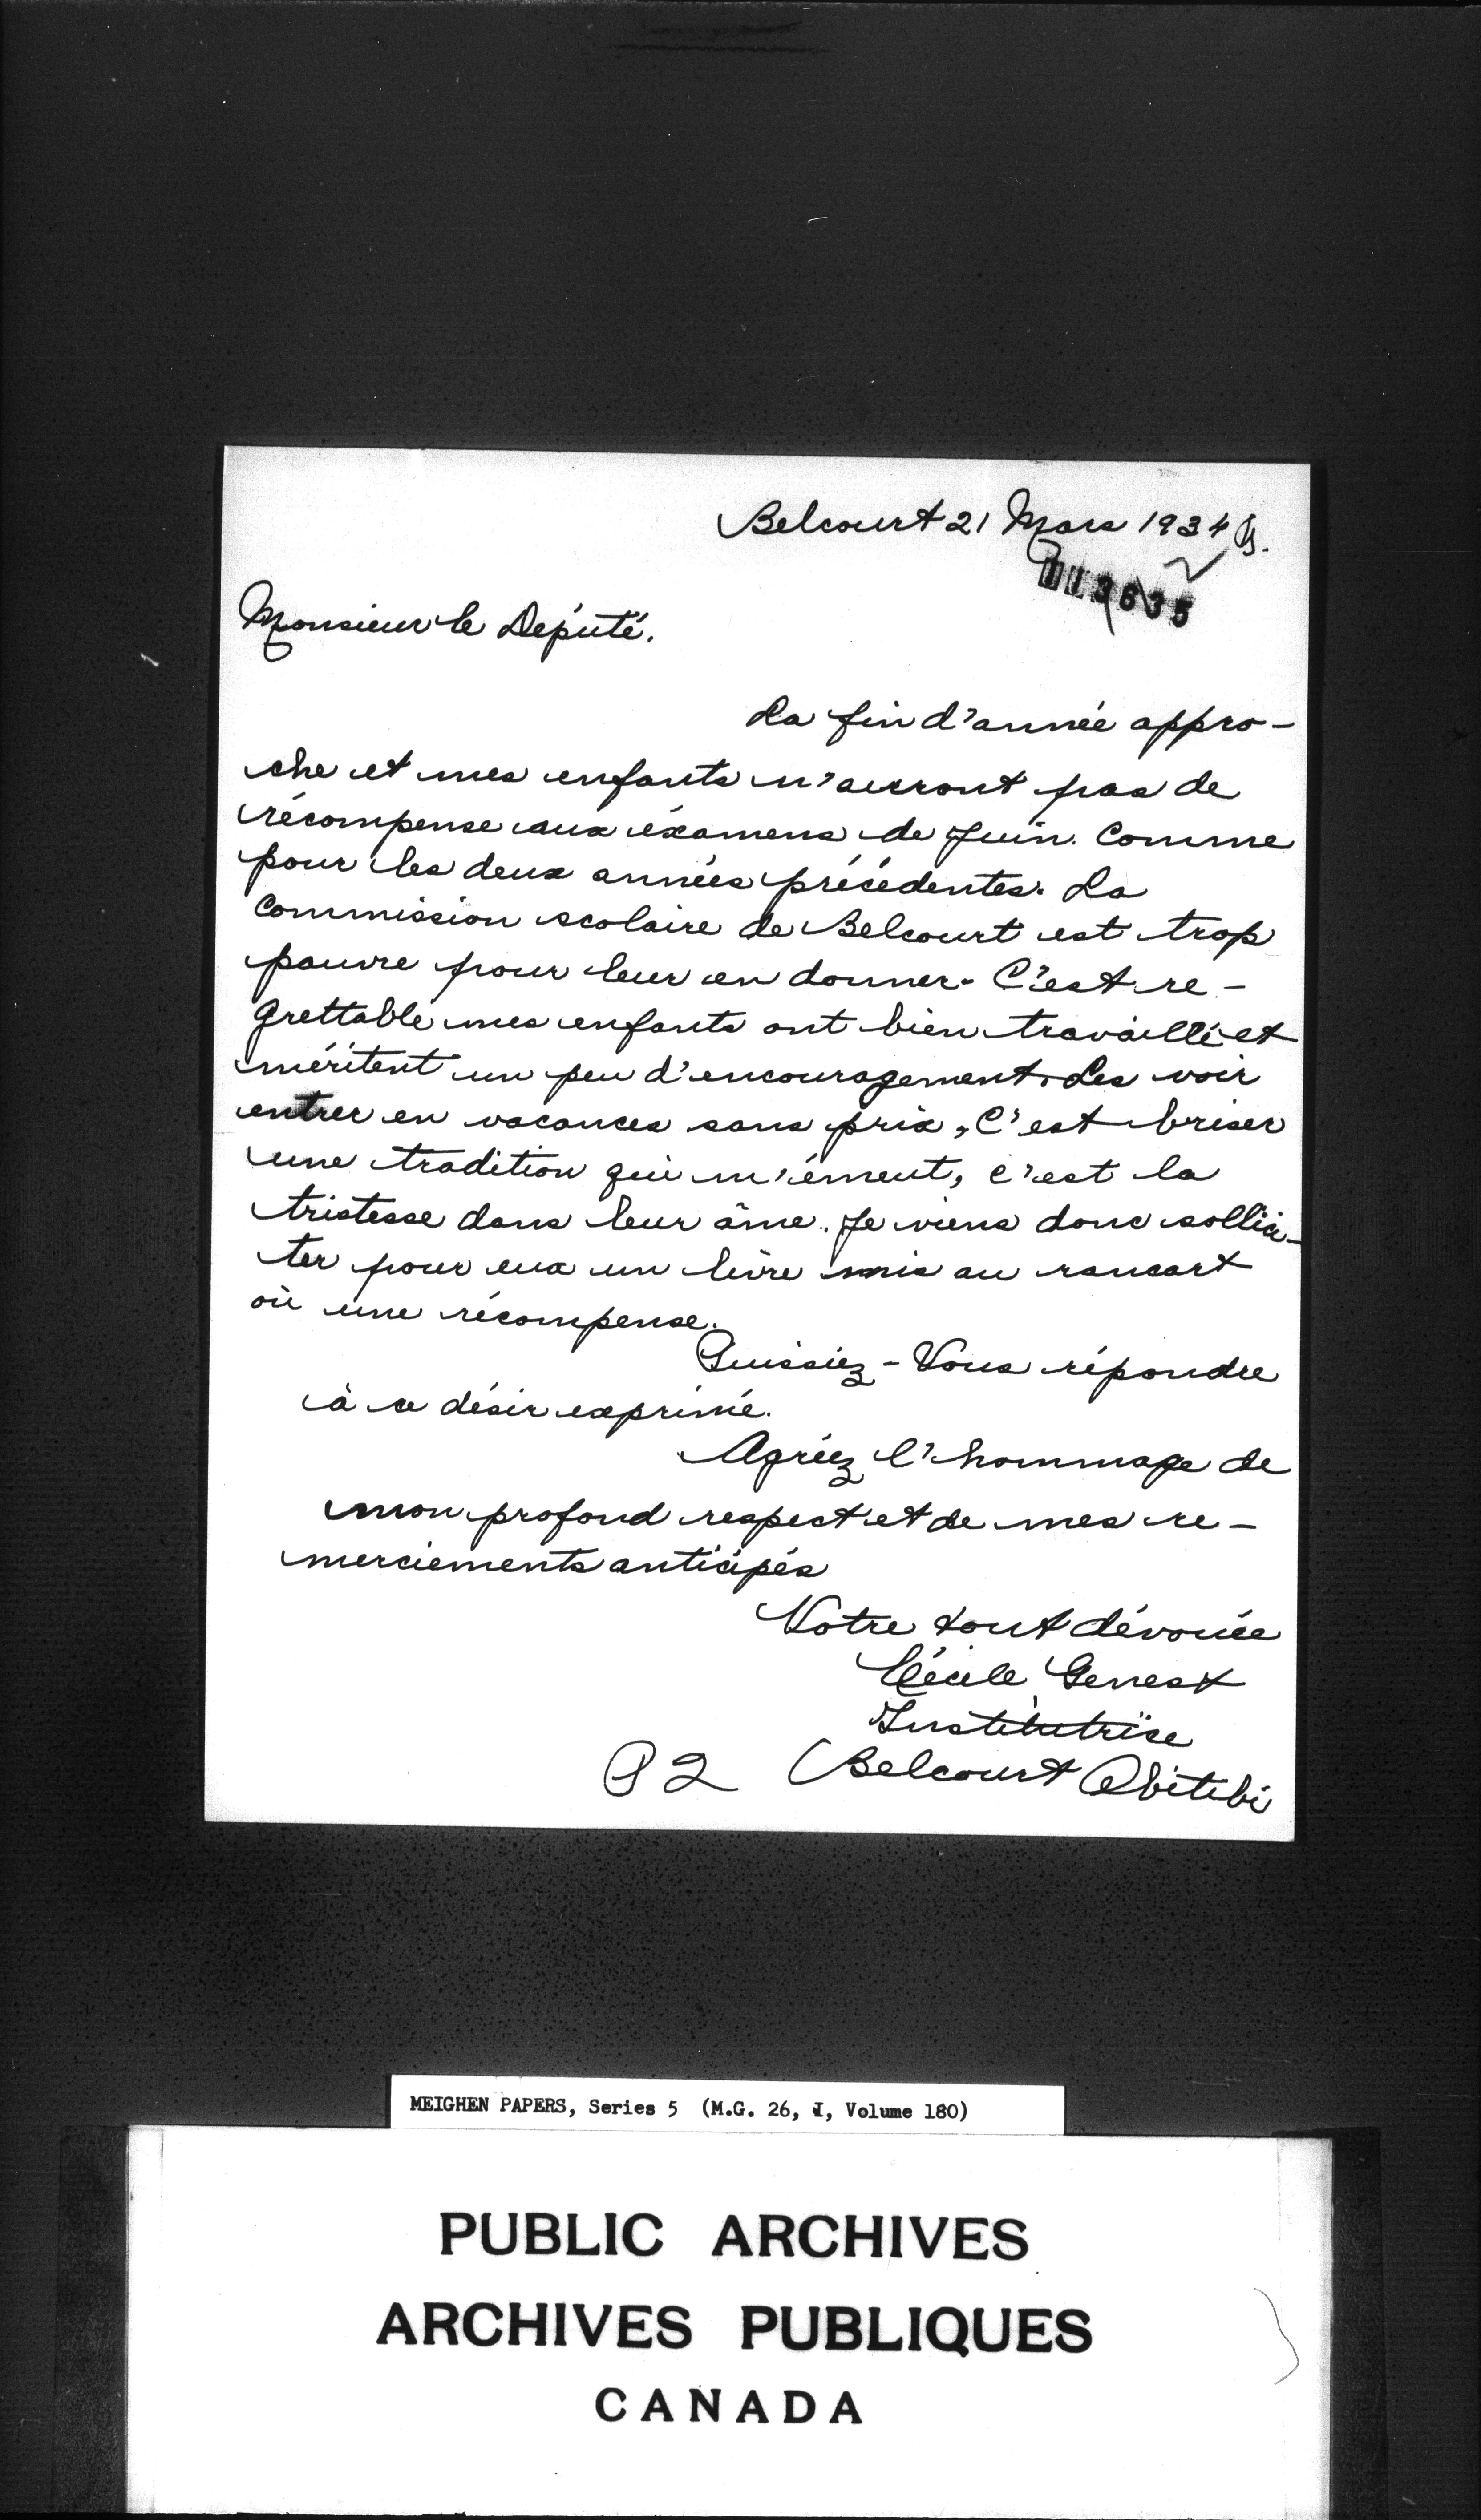 Belcourt 21 Mars 1934
113635
Monsieur le Député.
La fin d'année appro-
che et mes enfants n'auront pas de
récompense aux éxamens de Juin. Comme
pour les deux années précédentes. La
Commission scolaire de Belcourt est trop
pauvre pour leur en donner. C'est re-
grettable mes enfants ont bien travaillé et
méritent un peu d'encouragement. Les voir
entrer en vacances sans prix, C'est briser
une tradition qui m'émeut, c'est la
tristesse dans leur âme. Je viens donc sollici-
ter pour eux un livre mis au rancart
où une récompense.
Puissiez-Vous répondre
à ce désir exprimé.
Agréez l'hommage de
mon profond respect et de mes re-
merciements anticipés
Votre tout dévouée
Cécile Genest
Institutrice
P2 Belcourt Abitibi
MEIGHEN PAPERS, Series 5 (M.G. 26, I, Volume 180)
PUBLIC ARCHIVES
ARCHIVES PUBLIQUES
CANADA